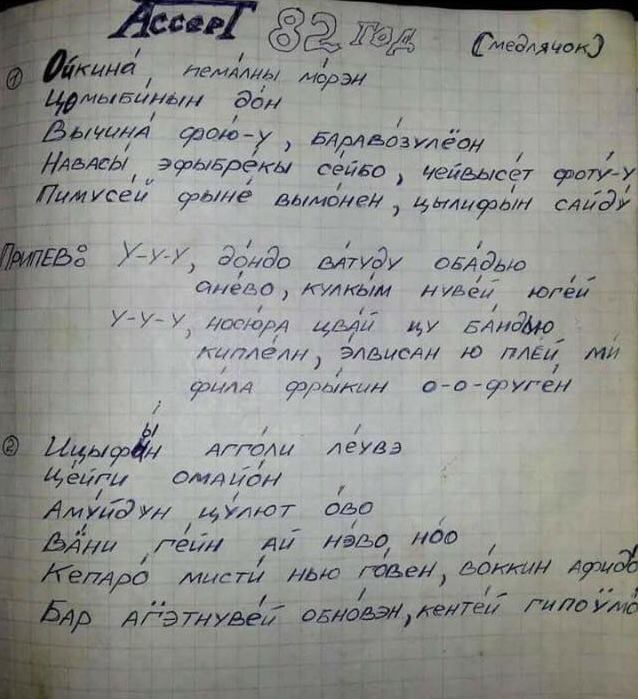 Accept 82 год (медлячок)
① Ойкина́, пема́лны мо́рэн
Цомыби́нын до́н
Вычина́ фою́-у, барово́зулёон
Навасы́, эфыбре́кы се́йбо, чейвысе́т фоту́-у
Пимусе́й фыне́ вымо́нен, цылифы́н сайду́
Припев: У-у-у, до́ндо ва́туду оба́дью
ане́во, кулкы́м нуве́й юге́й
У-у-у, носю́ра цва́й цу ба́ндью
кипле́лн, э́лвисан ю пле́й ми
фи́ла фры́кин о-о-фуге́н
② Ицыфы́н агго́ли ле́увэ
Це́йги омайо́н
Аму́йдун цу́лют о́во
Ва́ни ге́йн ай нэ́во но́о
Кепаро́ мисти́ нью го́вен, во́ккин афидо
Бар агэтнуве́й обно́вэн, кенте́й гипоумо́